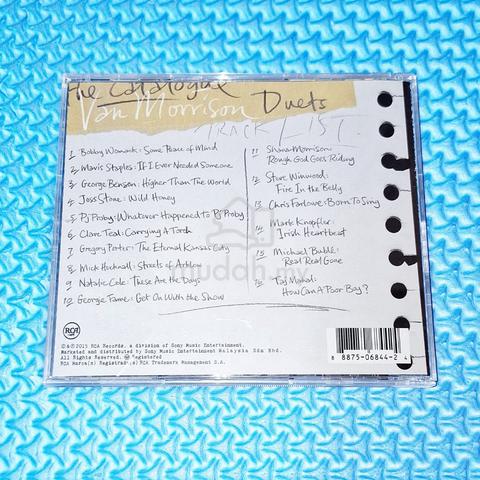 The Catalogue
Van Morrison Duets
TRACK LIST.
1 Bobby Womack: Some Peace of Mind
2 Mavis Staples: If I Ever Needed Someone
3 George Benson: Higher Than The World
4 Joss Stone: Wild Honey
5 PJ Proby: Whatever Happened to PJ Proby
6 Clare Teal: Carrying A Torch
7 Gregory Porter: The Eternal Kansas City
8 Mick Hucknall: Streets of Arklow
9 Natalie Cole: These Are the Days
10 George Fame: Get On With the Show
11 Shana Morrison:
Rough God Goes Riding
12 Steve Winwood:
Fire In the Belly
13 Chris Farlowe: Born To Sing
14 Mark Knopfler:
Irish Heartbeat
15 Michael Bublé:
Real Real Gone
16 Taj Mahal:
How Can A Poor Boy?
mudah.my
RCA
℗ & © 2015 RCA Records, a division of Sony Music Entertainment.
Marketed and distributed by Sony Music Entertainment Malaysia Sdn Bhd.
All Rights Reserved. ® Registered
RCA Marca(s) Registrada(s) RCA Trademark Management S.A.
8 8875-06844-2 4